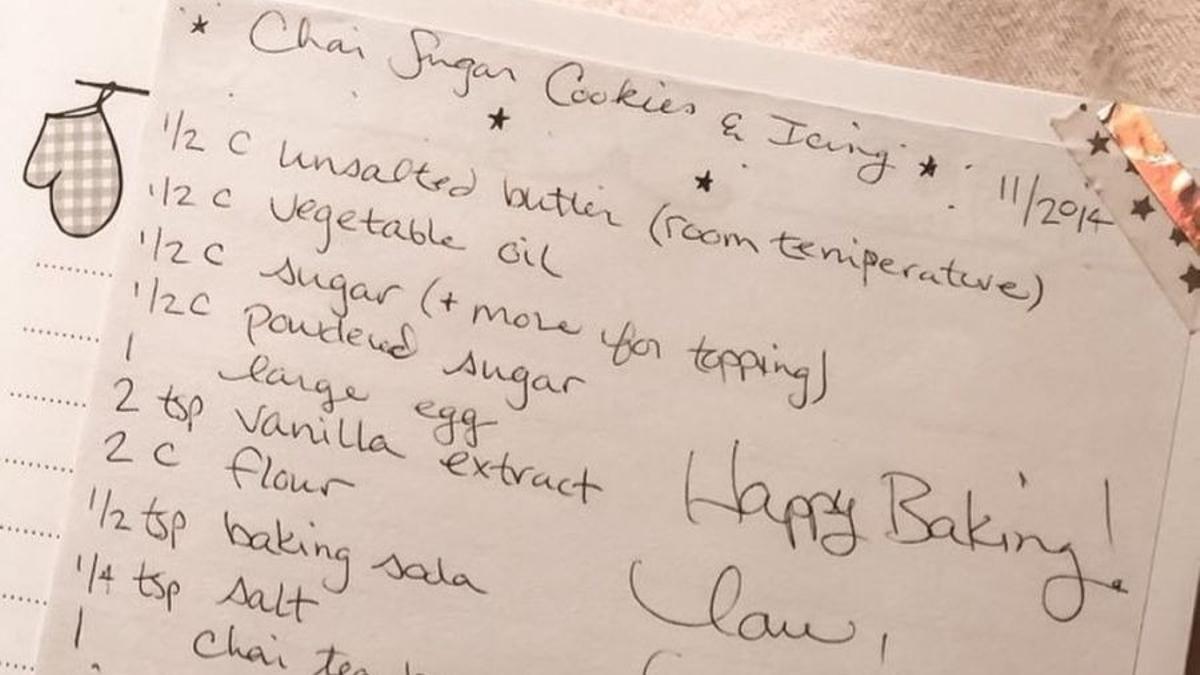 * Chai Sugar Cookies & Icing *
11/2014
1/2 c unsalted butter (room temperature)
1/2 c vegetable oil
1/2 c sugar (+ more for topping)
1/2 c powdered sugar
1 large egg
2 tsp vanilla extract
2 c flour
1/2 tsp baking soda
1/4 tsp salt
1 Chai tea
Happy Baking!